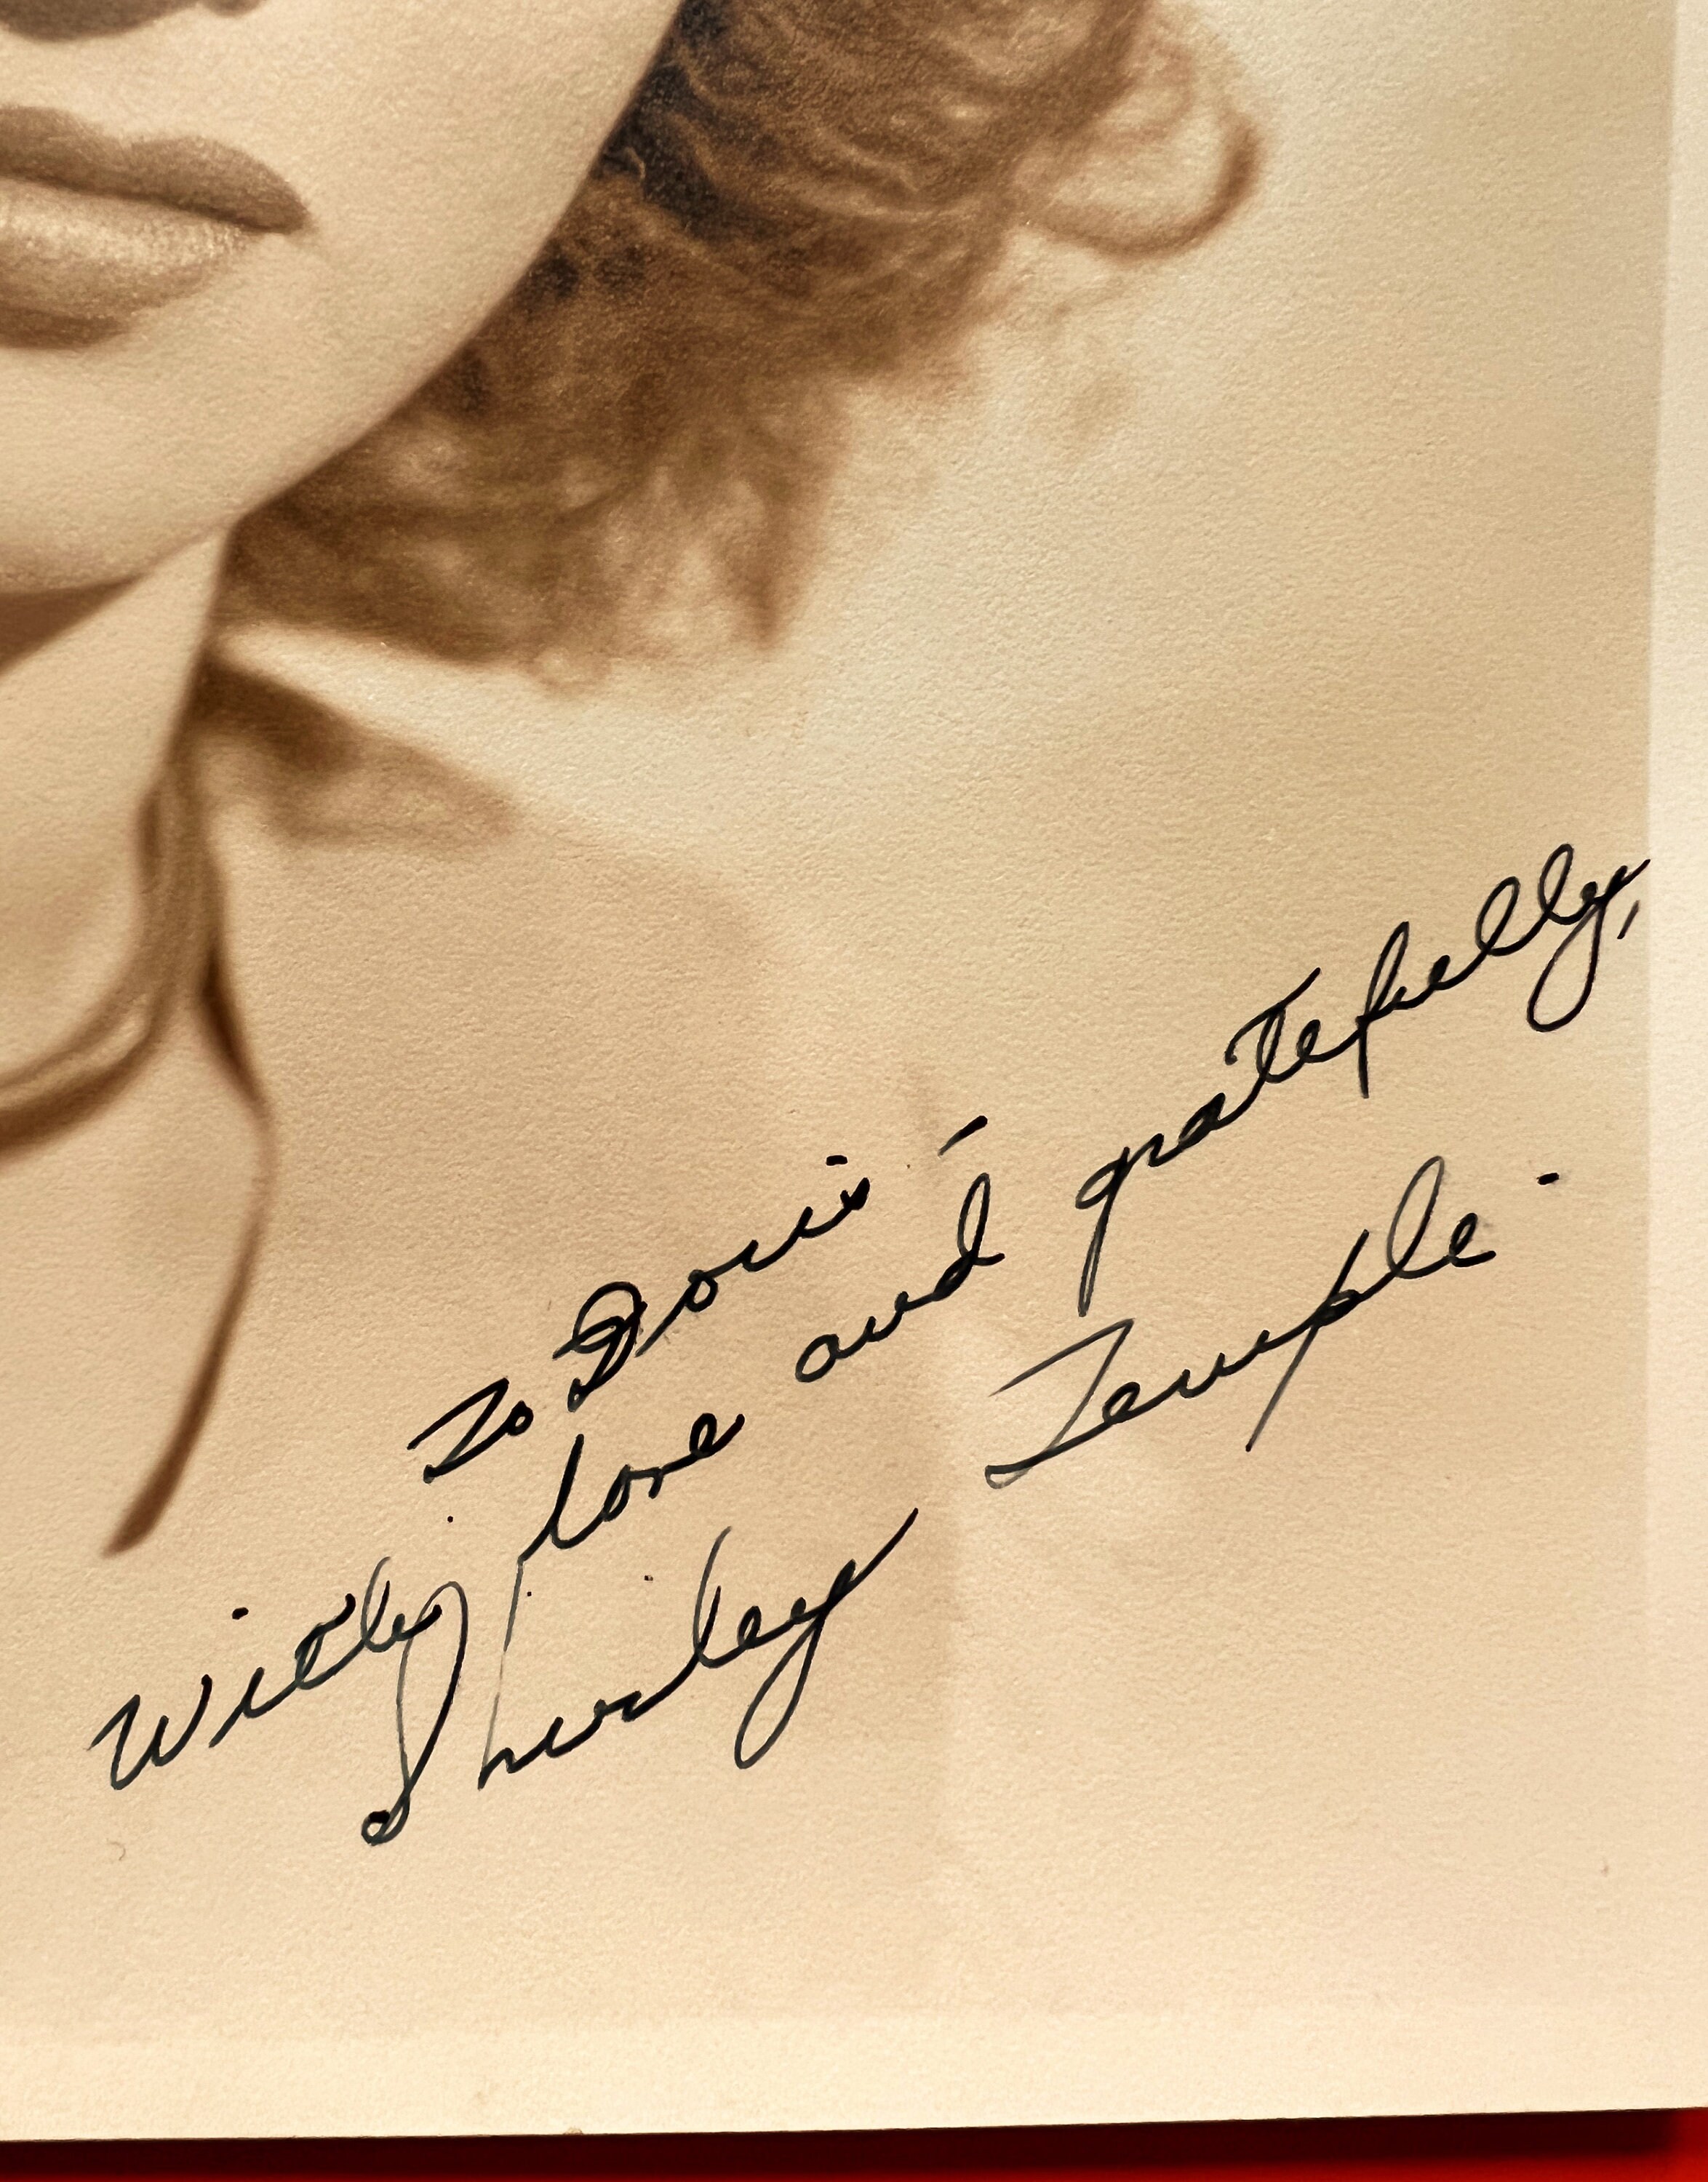 To Doris -
With love and gratefully,
Shirley Temple -